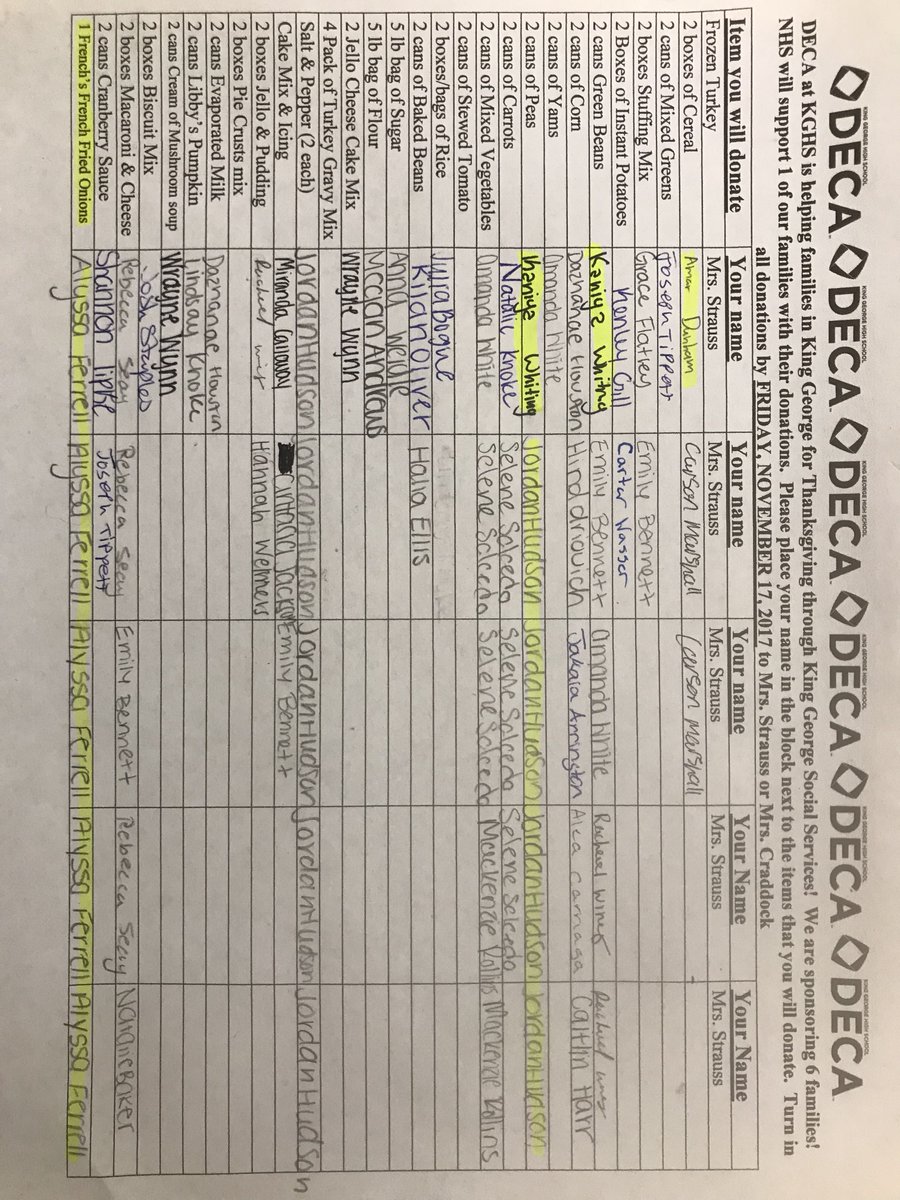 KING GEORGE HIGH SCHOOL KING GEORGE HIGH SCHOOL KING GEORGE HIGH SCHOOL KING GEORGE HIGH SCHOOL KING GEORGE HIGH SCHOOL KING GEORGE HIGH SCHOOL
DECA DECA DECA DECA DECA DECA
DECA at KGHS is helping families in King George for Thanksgiving through King George Social Services! We are sponsoring 6 families!
NHS will support 1 of our families with their donations. Please place your name in the block next to the items that you will donate. Turn in
all donations by FRIDAY, NOVEMBER 17, 2017 to Mrs. Strauss or Mrs. Craddock
Item you will donate Your name Your name Your name Your Name Your Name
Frozen Turkey Mrs. Strauss Mrs. Strauss Mrs. Strauss Mrs. Strauss Mrs. Strauss
2 boxes of Cereal Amar Dunham Carson Marshall Carson Marshall
2 cans of Mixed Greens Joseph Tippett
2 boxes Stuffing Mix Grace Flatley Emily Bennett
2 Boxes of Instant Potatoes Kenley Gill Carter Wasser
2 cans Green Beans Kaniya Whiting Emily Bennett Amanda White Rachael Rachael
2 cans of Corn Houston Hind driouich Jakaia Arrington Carriaga Caitlin Harr
2 cans of Yams Amanda White
2 cans of Peas Kaniya Whiting Jordan Hudson Jordan Hudson Jordan Hudson Jordan Hudson
2 cans of Carrots Natalie Knoke Selene Salcedo Selene Salcedo Selene Salcedo
2 cans of Mixed Vegetables Amanda White Selene Salcedo Selene Salcedo Mackenzie Rollins Mackenzie Rollins
2 cans of Stewed Tomato
2 boxes/bags of Rice Julia Bogue
2 cans of Baked Beans Kilan Oliver Halia Ellis
5 lb bag of Sugar Anna Wedle
5 lb bag of Flour Mccain Andrews
2 Jello Cheese Cake Mix Wrayne Wynn
4 Pack of Turkey Gravy Mix
Salt & Pepper (2 each) Jordan Hudson Jordan Hudson Jordan Hudson Jordan Hudson Jordan Hudson
Cake Mix & Icing Miranda Calloway Jackson Emily Bennett
2 boxes Jello & Pudding Rachael Hannah Wehmers
2 boxes Pie Crusts mix
2 cans Evaporated Milk Houston
2 cans Libby's Pumpkin Lindsay Knoke
2 cans Cream of Mushroom soup Wrayne Wynn
2 boxes Biscuit Mix Josh Staples
2 boxes Macaroni & Cheese Rebecca Seay Rebecca Seay Emily Bennett Rebecca Seay Natalie Baker
2 cans Cranberry Sauce Shannon Lipke Joseph Tippett
1 French's French Fried Onions Alyssa Ferrell Alyssa Ferrell Alyssa Ferrell Alyssa Ferrell Alyssa Ferrell